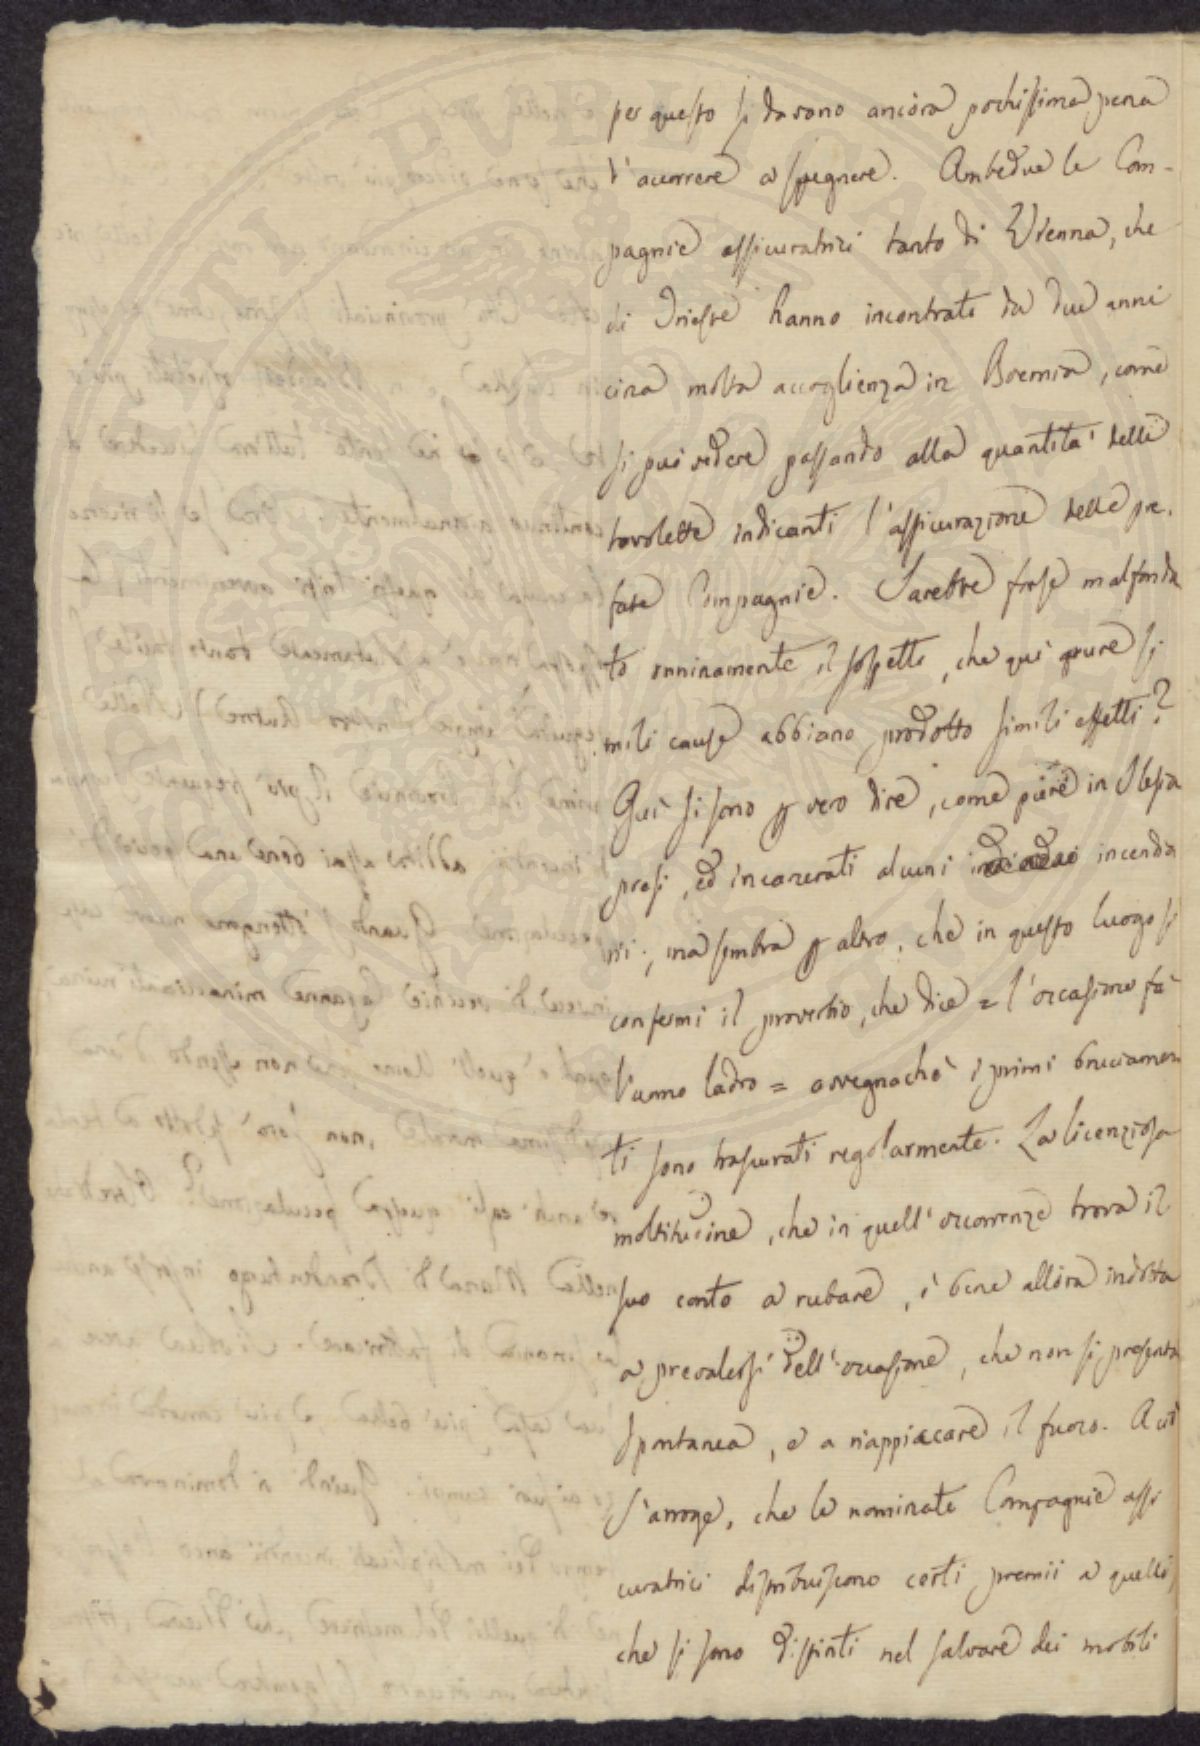 per questo si darono ancora pochissima pena
l'accorrere a spegnere. Ambedue le Com-
pagnie assicuratrici tanto di Vienna, che
di Trieste hanno incontrato da due anni
circa molta accoglienza in Boemia, come
si può vedere passando alla quantità delle
tavolette indicanti l'assicurazione delle pre-
fate Compagnie. Sarebbe forse malfonda
to onninamente il sospetto, che quì pure si
mili cause abbiano prodotto simili effetti?
Quì si sono per vero dire, come pure in Slesia
presi, ed incarcerati alcuni incendia
rii; ma sembra per altro, che in questo luogo si
confermi il proverbio, che dice = l'occasione fà
l'uomo ladro = avvegnachè i primi bruciamen
ti sono trascurati regolarmente. La licenziosa
moltitudine, che in quell'occorrenze trova il
suo conto a rubare, è bene allora indotta
a prevalersi dell'occasione, che non si presenta
spontanea, e a riappiccare il fuoco. A ciò
s'arroge, che le nominate Compagnie assi
curatrici distribuiscono certi premii a quelli,
che si sono distinti nel salvare dei mobili